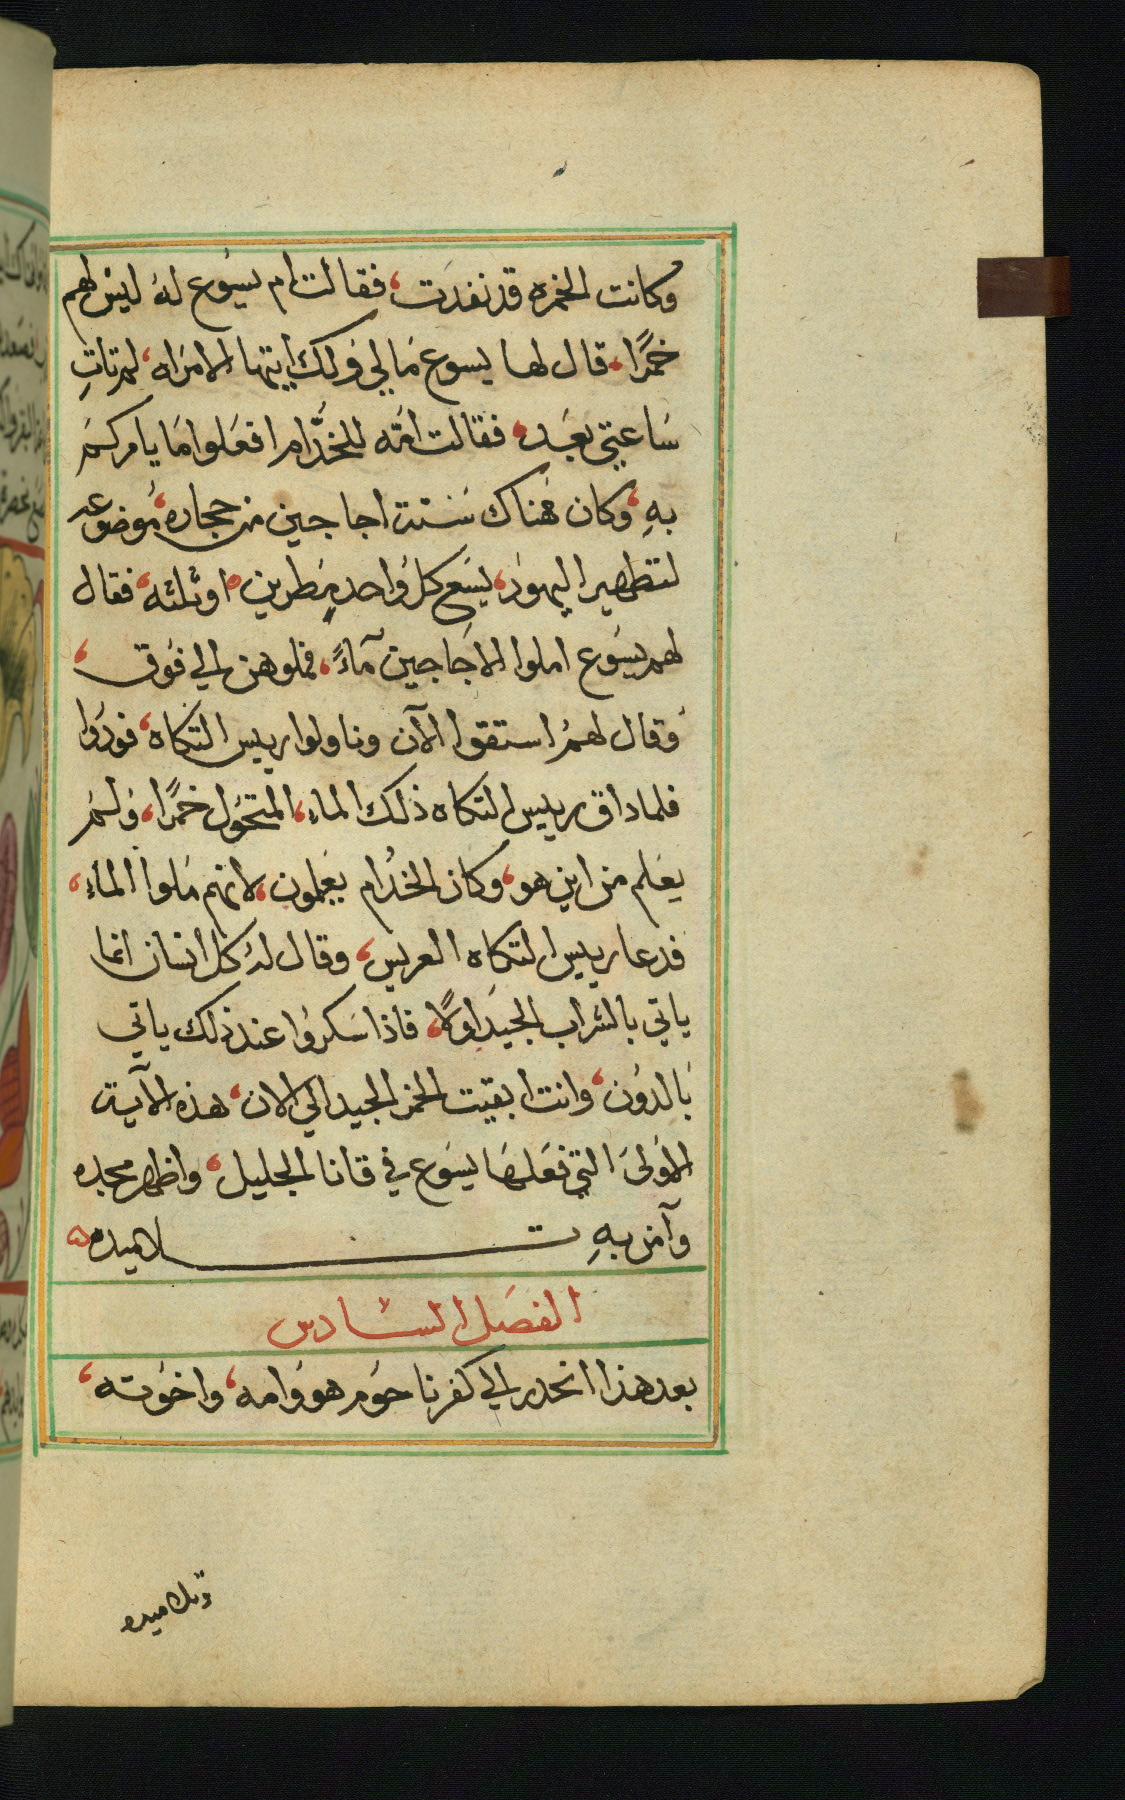 وكانت الخمره قد نفدَت، فقالت ام يسُوع لهُ ليسَ لهم
خمرًا، قال لها يسوع مَا لي وَلك ايتها الامرَاه، لم تاتِ
سَاعتي بعَد، فقالت امّه للخدَّام افعَلوا مَا يامركمَ
بهِ، وكان هُناك سَتت اجاجين من حجاره، مُوضوعه
لتطهير اليهوُد، يسَع كل وُاحد مِطرين ه اوثلثه، فقال
لهم يسَوع املوا الاجَاجين مآءً، فملوهن الي فوَق،
وَقال لهمُ استقوا الآن وناولوا رييس التكاه، فودَوا
فلما داق رييس التكاه ذلك الماءِ، المتحَوُل خمرًا، وَلمَ
يعَلم من اين هو، وكان الخدُام يعَلمون، لانهم مَلوا الماءِ،
فدعا رييس التكاه العريس، وقال لهُ كل انسَان انما
ياتي بالشراب الجيد اولاً، فاذا سَكروُا عند ذلك ياتي
بَالدوُن، وانت ابقيت الخمر الجيد الي الان، هذه الآية
الاوَلىَ التي فعَلهَا يسَوع في قانا الجليل، واظهر مجده
وآمن بهِ تلاميده ه
الفصَل السَادس
بعد هذا انحدر الي كفرنا حوُم هو وَامه، واخوُته،
وتلاميده